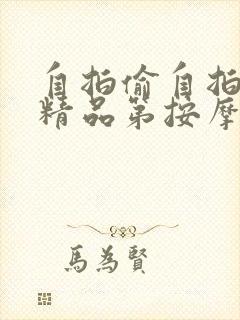 自拍偷自拍
精品第按摩
馬為賢